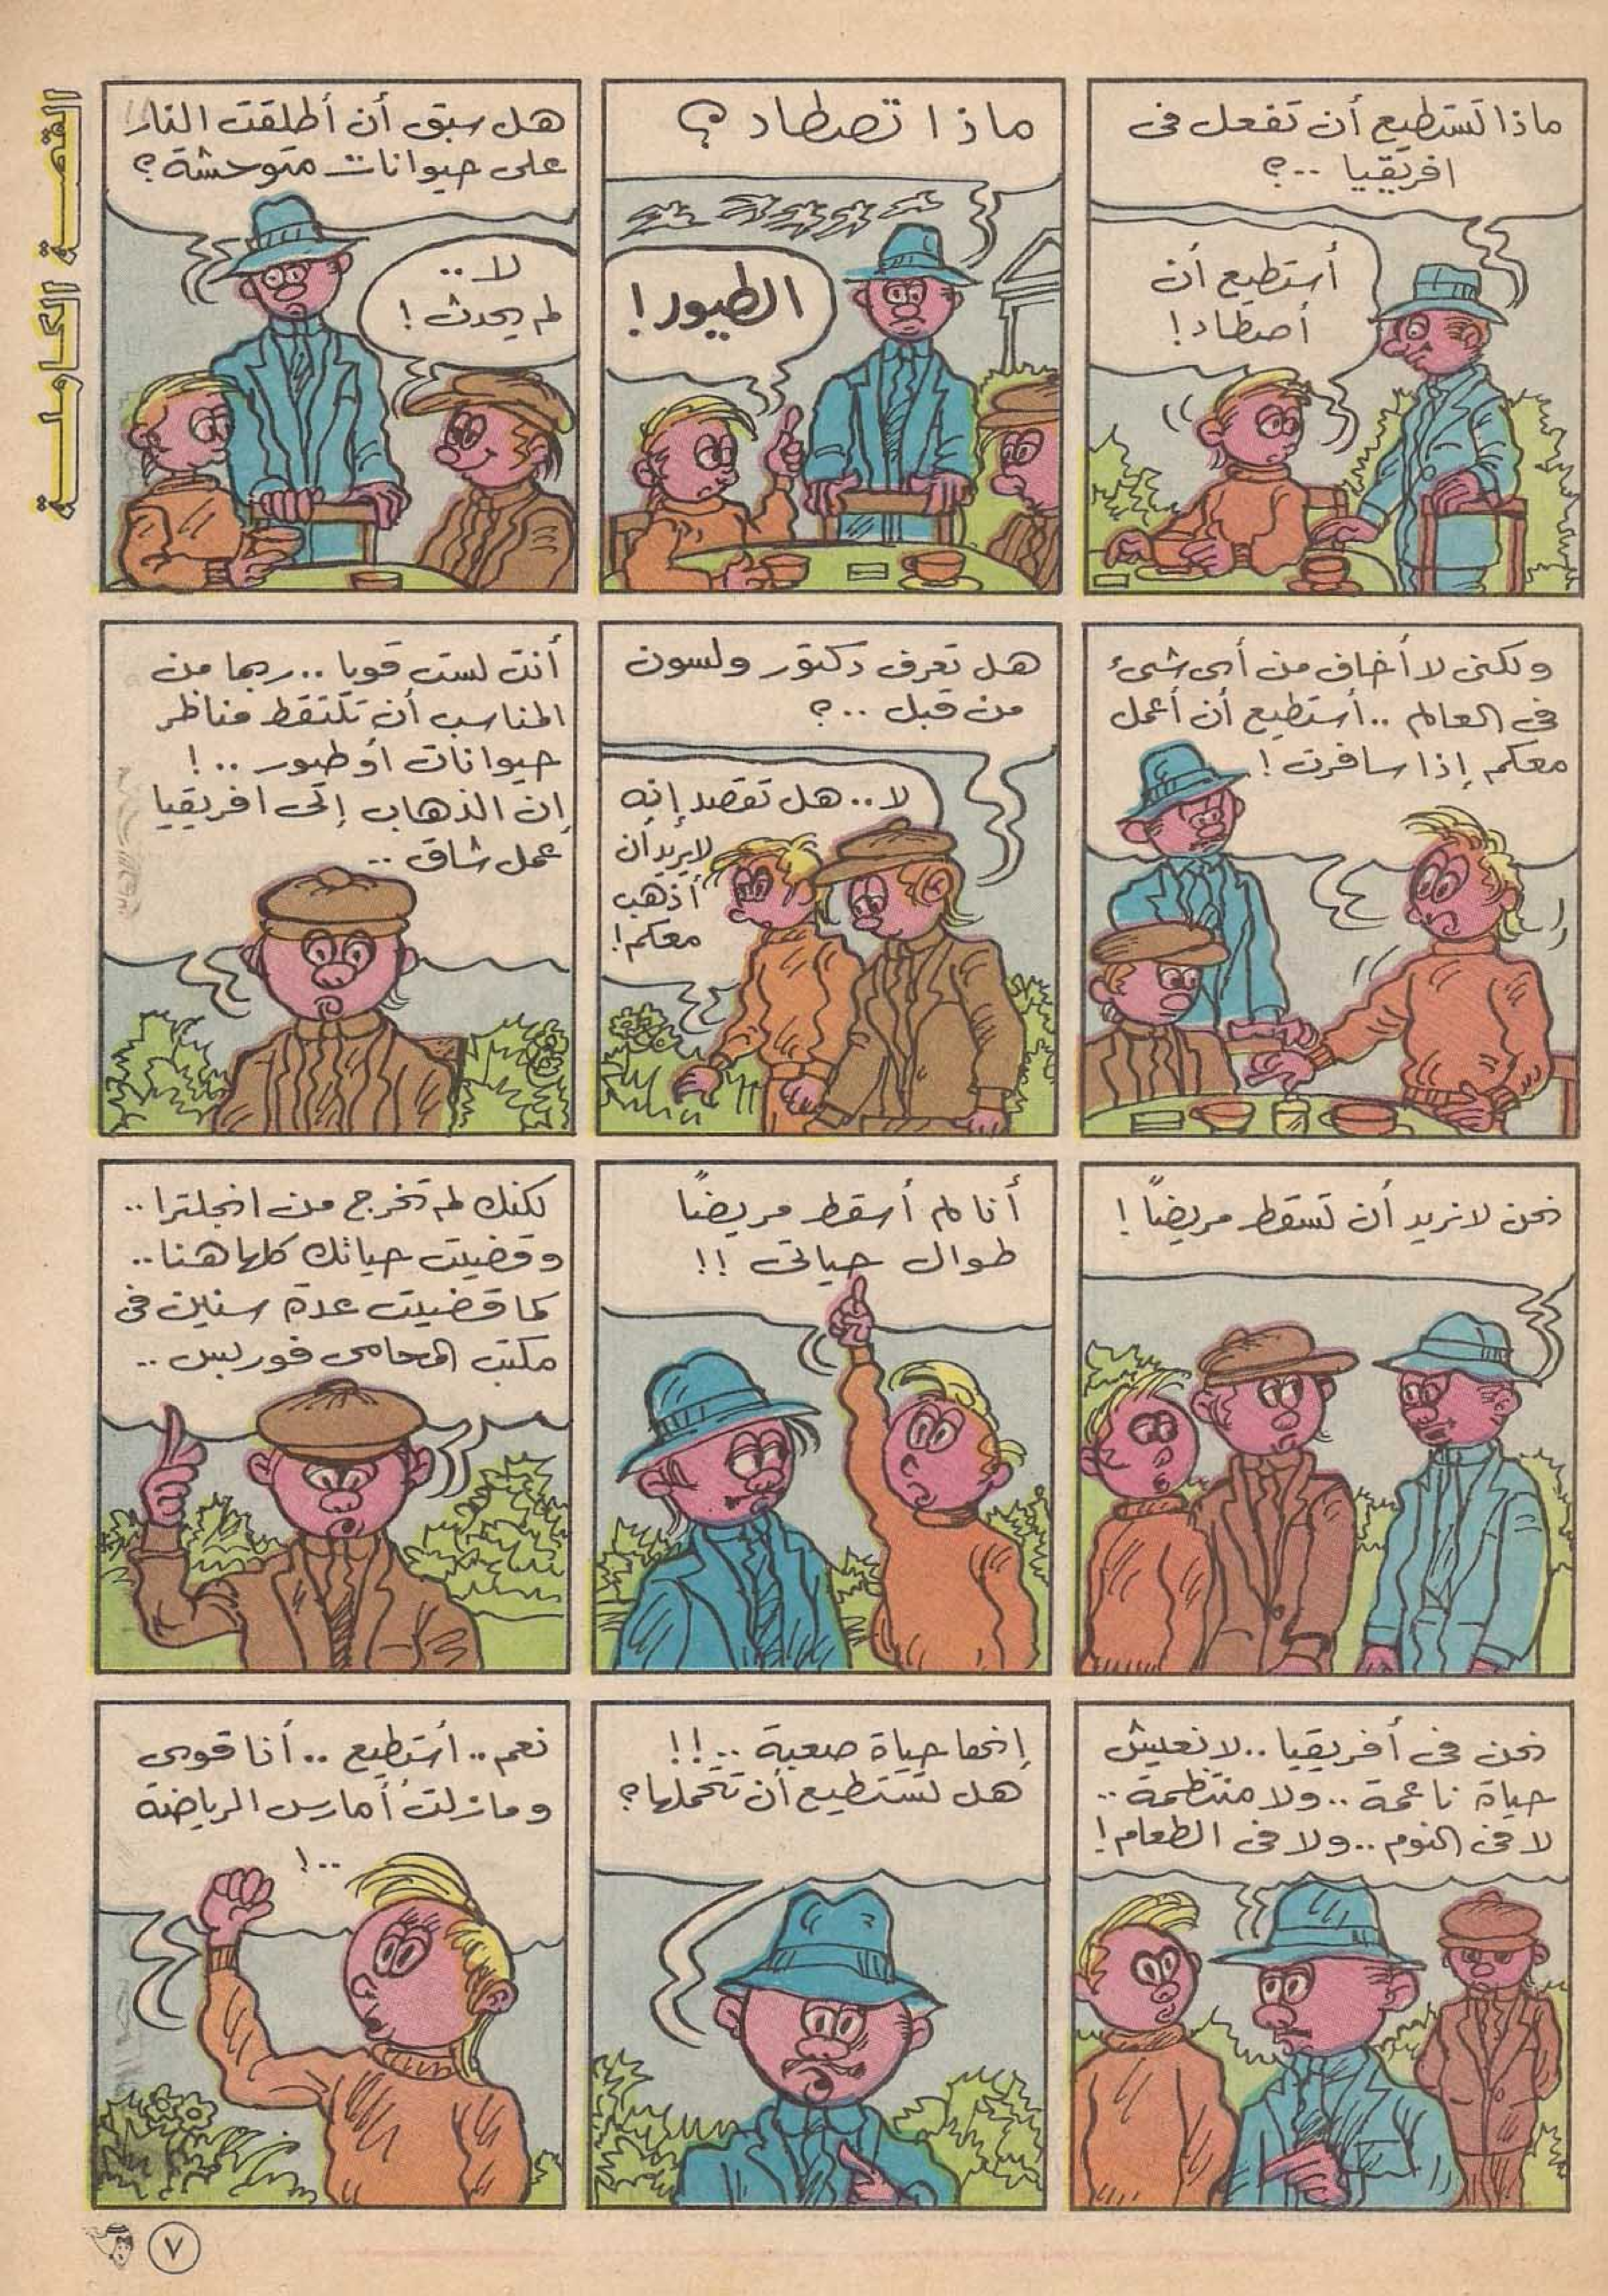 القصة الكاملة
ماذا تستطيع أن تفعل فى
افريقيا ..؟
أستطيع أن
أصطاد!
ماذا تصطاد ؟
الطيور!
هل سبق أن أطلقت النار
على حيوانات متوحشة؟
لا ..
لم يحدث !
ولكنى لا أخاف من أى شىء
فى العالم .. أستطيع أن أعمل
معكم إذا سافرت !
هل تعرف دكتور ولسون
من قبل ..؟
لا .. هل تقصد إنه
لا يريد أن
أذهب
معكم!
أنت لست قويا .. ربما من
المناسب أن تلتقط مناظر
حيوانات أو طيور .. !
إن الذهاب إلى افريقيا
عمل شاق ..
نحن لا نريد أن تسقط مريضًا !
أنا لم أسقط مريضًا
طوال حياتى !!
لكنك لم تخرج من انجلترا ..
وقضيت حياتك كلها هنا ..
كما قضيت عدة سنين فى
مكتب المحامى فوربس ..
نحن فى أفريقيا .. لا نعيش
حياة ناعمة .. ولا منتظمة ..
لا فى النوم .. ولا فى الطعام !
إنها حياة صعبة .. !!
هل تستطيع أن تتحملها ؟
نعم .. أستطيع .. أنا قوى
ومازلت أمارس الرياضة
.. !
٧